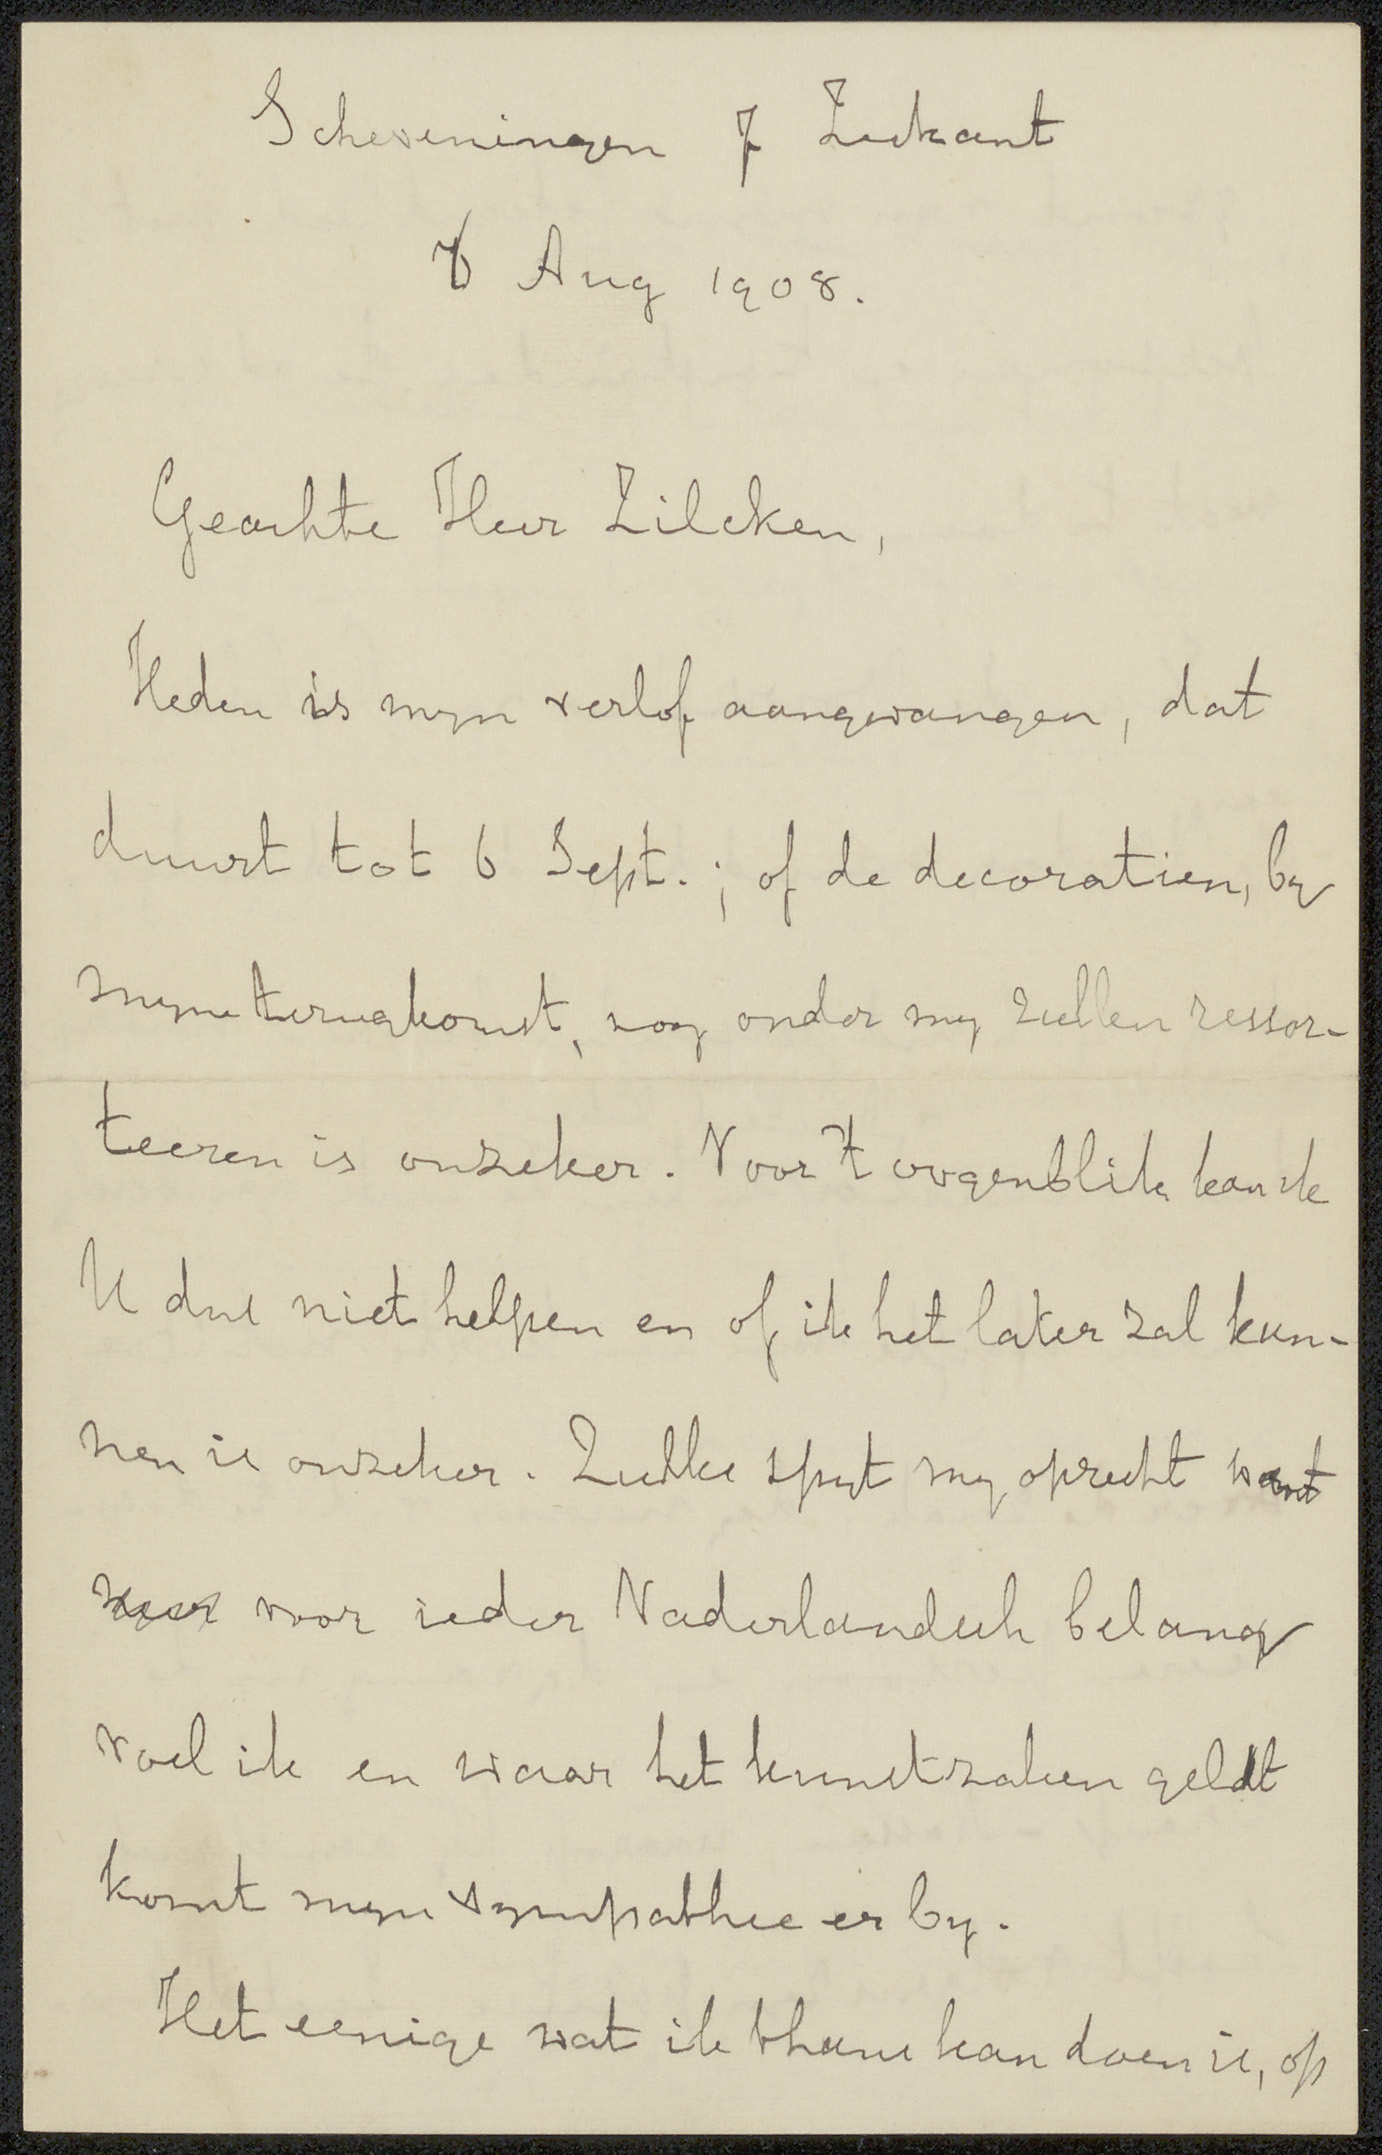 Scheveningen 7 Zeekant
6 Aug 1908.
Geachte Heer Zilcken,
Heden is myn verlof aangevangen, dat
duurt tot 6 Sept.; of de decoratien, by
myne terugkomst, nog onder my zullen ressor-
teeren is onzeker. Voor 't oogenblik kan ik
U dus niet helpen en of ik het later zal kun-
nen is onzeker. Zulks spyt my oprecht want
voor ieder Nederlandsch belang
voel ik en waar het kunstzaken geldt
komt myn sympathie er by.
Het eenige wat ik thans kan doen is, op